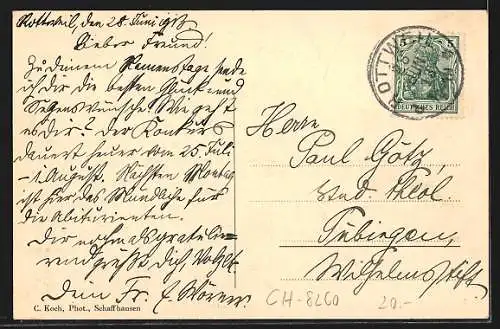 Rottweil, den 28. Juni
Lieber Freund!
Zu Deinem Namenstage sende
ich dir die besten Glück- und
Segenswünsche. Wie geht
es dir? Der Konkurs
dauert heuer vom 25. Juli
– 1. August. Nächsten Montag
ist hier das Mündliche für
die Abiturienten.
Dir nochmals gratulie-
rend grüßt dich
Dein Fr.
C. Koch, Phot., Schaffhausen
ROTTWEIL
5 5
DEUTSCHES REICH
Herrn
Paul Götz,
stud. theol.
Tübingen,
Wilhelmsstift.
CH-8260
20.-